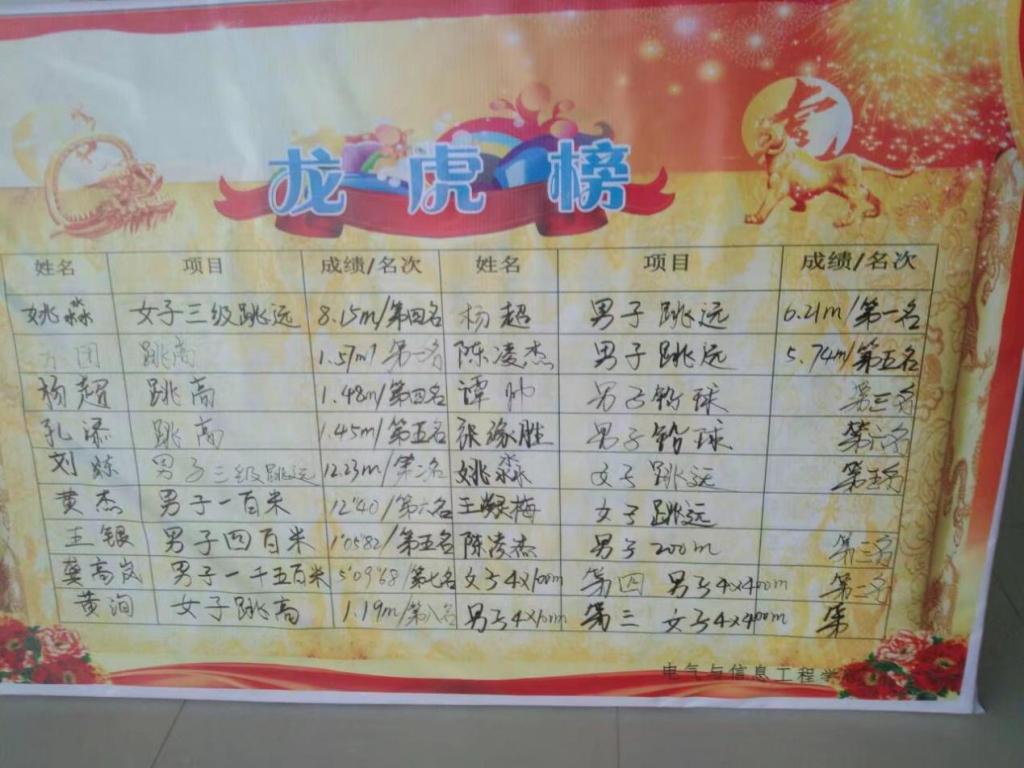 龙虎榜
姓名 项目 成绩/名次 姓名 项目 成绩/名次
姚淼 女子三级跳远 8.15m/第四名 杨超 男子跳远 6.21m/第一名
方团 跳高 1.57m/第一名 陈凌杰 男子跳远 5.74m/第五名
杨超 跳高 1.48m/第四名 谭帅 男子铅球 第三名
孔添 跳高 1.45m/第五名 张缘胜 男子铅球 第六名
刘 男子三级跳远 12.23m/第二名 姚淼 女子跳远 第五名
黄杰 男子一百米 12"40/第六名 王凝梅 女子跳远
王银 男子四百米 1'05"82/第五名 陈凌杰 男子200m 第三名
龚高岚 男子一千五百米 5'09"68/第七名 女子4×100m 第四 男子4×400m 第一名
黄洵 女子跳高 1.19m/第八名 男子4×100m 第三 女子4×400m 第
电气与信息工程学